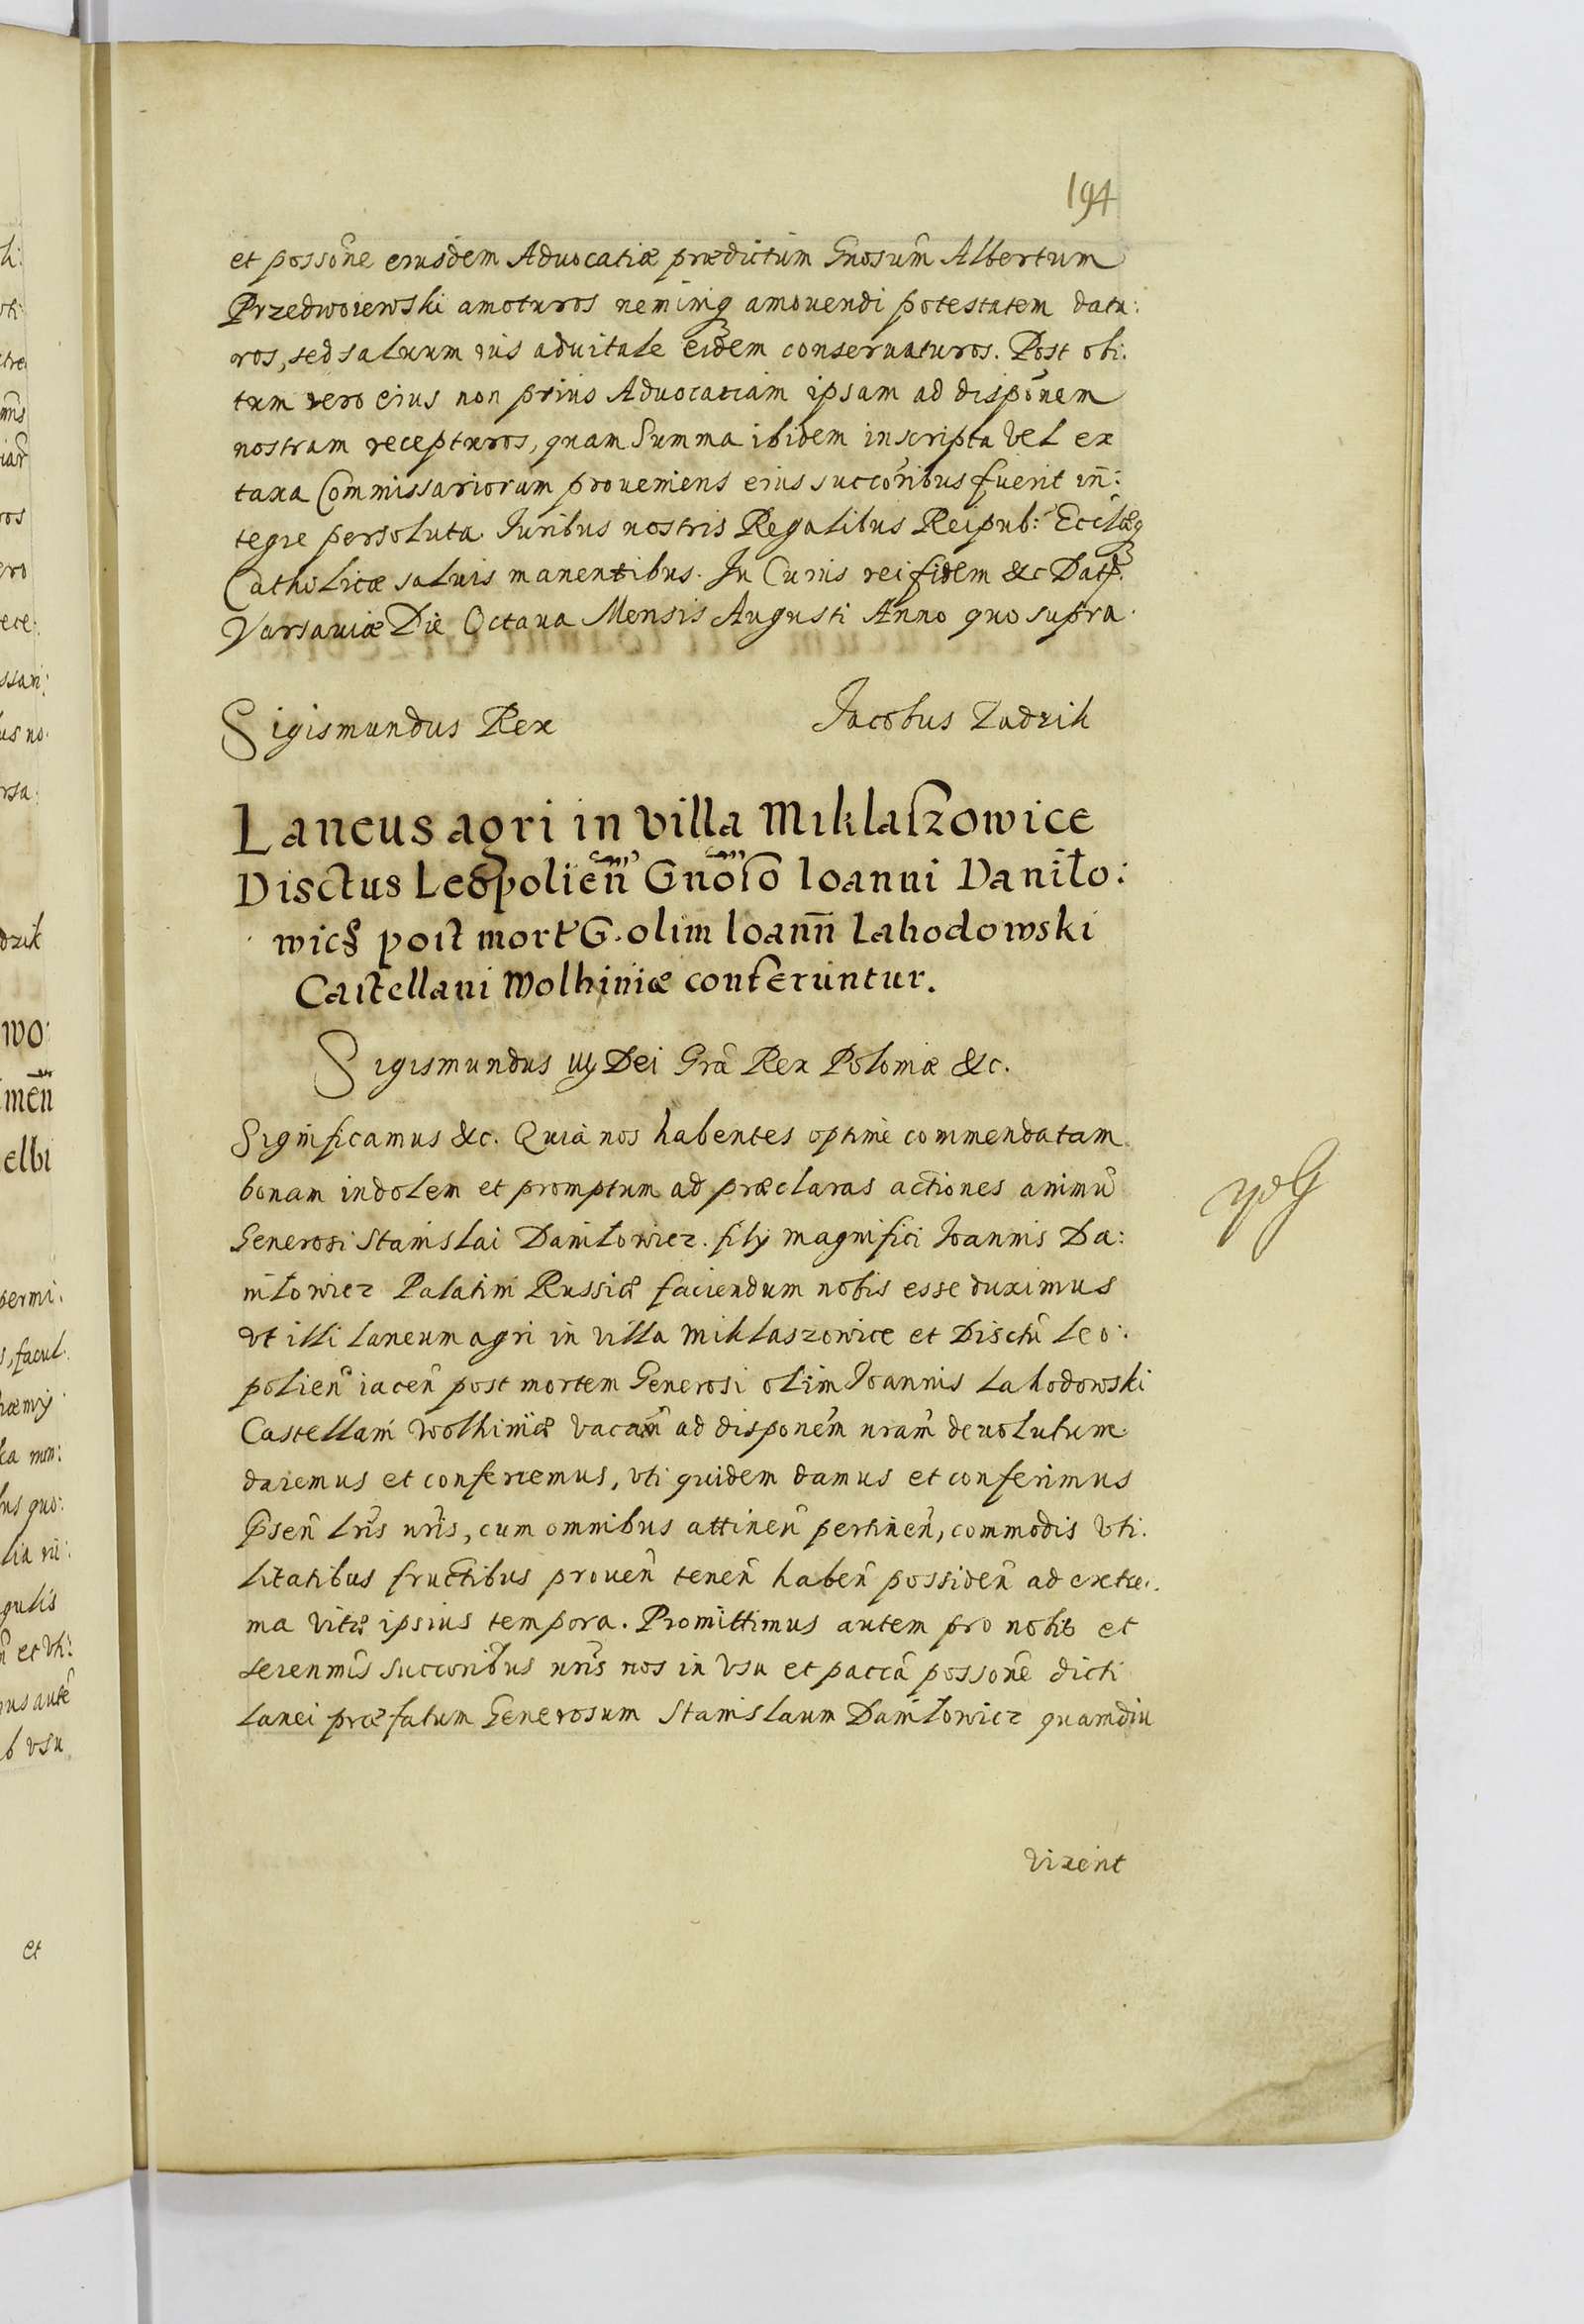 194
et possoñe eiusdem Aduocatiæ prædictum Gnosum̃ Albertum
Przedwoiewski amoturos neminiq; amouendi potestatem datu:
ros, sed saluum ius aduitale eidem conseruaturos. Post obi:
tum vero eius non prius Aduocatiam ipsam ad dispõnem
nostram recepturos, quam Summa ibidem inscripta vel ex
taxa Commissariorum proueniens eius succõribus fuerit in:
tegre persoluta. Iuribus nostris Regalibus Reipub: Ecclæq;
Catholicæ saluis manentibus. In Cuius rei fidem &c Dat.
Varsauiæ Die Octaua Mensis Augusti Anno quo supra.
Sigismundus Rex Jacobus Zadzik
Laneus agri in villa Miklaſzowice
Disctus Leopolien̄ Gnõſo Ioanni Daniło:
wicz post mort̃ G. olim Ioann̄ Lahodowski
Castellani Wolhiniæ conferuntur.
Sigismundus iij Dei Grã Rex Poloniæ &c.
Significamus &c. Quia nos habentes optimè commendatam
bonam indolem et promptum ad præclaras actiones animũ
Generosi Stanislai Daniłowicz. filij magnifici Ioannis Da:
niłowicz Palatini Russiæ faciendum nobis esse duximus
vt illi laneum agri in villa Miklaszowice et Disctũ Leo:
polien̄ iacen̄ post mortem Generosi olim Joannis Lahodowski
Castellani Wolhiniæ vacan̄ ad disponem̃ nram̃ deuolutum
daremus et conferremus, vti quidem damus et conferimus
p̃sen̄ lris̃ nris̃, cum omnibus attinen̄ pertinen̄, commodis vti:
litatibus fructibus prouen̄ tenen̄ haben̄ possiden̄ ad extre:
ma vitæ ipsius tempora. Promittimus autem pro nobis et
serenmis̃ succoribus̃ nris̃ nos in vsu et paccã possonẽ dicti
lanei præfatum Generosum Stanislaum Daniłowicz quamdiu
vixerit